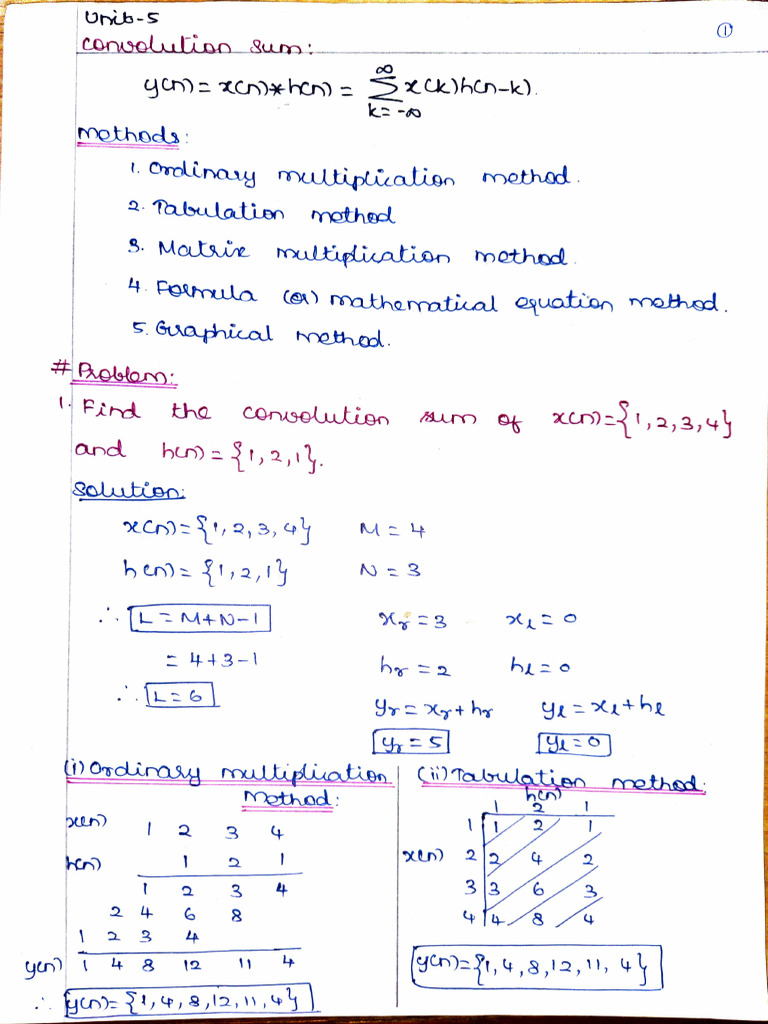 Unit-5
①
Convolution sum:
y(n) = x(n)*h(n) = ∞ Σ k=-∞ x(k)h(n-k).
Methods:
1. Ordinary multiplication method.
2. Tabulation method
3. Matrix multiplication method.
4. Formula (or) mathematical equation method.
5. Graphical method.
# Problem:
1. Find the convolution sum of x(n)={1,2,3,4}
and h(n)={1,2,1}.
Solution:
x(n)={1,2,3,4} M=4
h(n)={1,2,1} N=3
∴ L=M+N-1 xr=3 xl=0
=4+3-1 hr=2 hl=0
∴ L=6 yr=xr+hr yl=xl+hl
yr=5 yl=0
(i) Ordinary multiplication
Method:
x(n) 1 2 3 4
h(n) 1 2 1
1 2 3 4
2 4 6 8
1 2 3 4
y(n) 1 4 8 12 11 4
∴ y(n)={1,4,8,12,11,4}
(ii) Tabulation method:
h(n)
1 2 1
1 1 2 1
x(n) 2 2 4 2
3 3 6 3
4 4 8 4
y(n)={1,4,8,12,11,4}